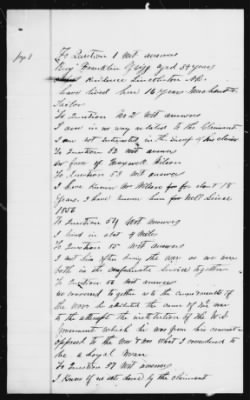 To Question 1 Wit answers
Benj Franklin Grigg aged 39 years
Residence Lincolnton N.C.
have lived here 16 years Merchant &
To Question No 2 Wit answers
I am in no way related to the Claimant
I am not interested in the success of his claim
To Question 52 Wit answers
in favor of Wilson
To Question 53 Wit answers
I have known Mr Wilson for about 18
years. I have known him well since
1856
To Question 54 Wit answers
I lived in about 4 miles
To Question 55 Wit answers
I met him often during the war as we were
both in the Confederate service together
To Question 56 Wit answers
we conversed together as to the causes & merits of
the war he attributed the cause of the war
to the attempt the institution of the U.S.
Government which he was from his
opposed to the war & was what I considered to
be a loyal man
To Question 57 Wit answers
I know of no acts done by the claimant